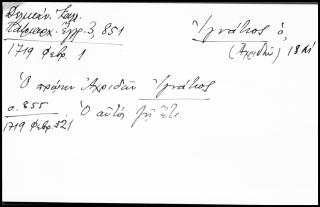 Δημιν. Ἐγγ.
Πατριαρχ. Ἔγγρ. 3, 851
1719 Φεβρ. 1
Ἰγνάτιος ὁ,
(Ἀχριδῶν) 18
Ὁ πρώην Ἀχριδῶν Ἰγνάτιος
σ. 855
1719 Φεβρ. 21. Ὁ αὐτός ζῇ ἔτι.